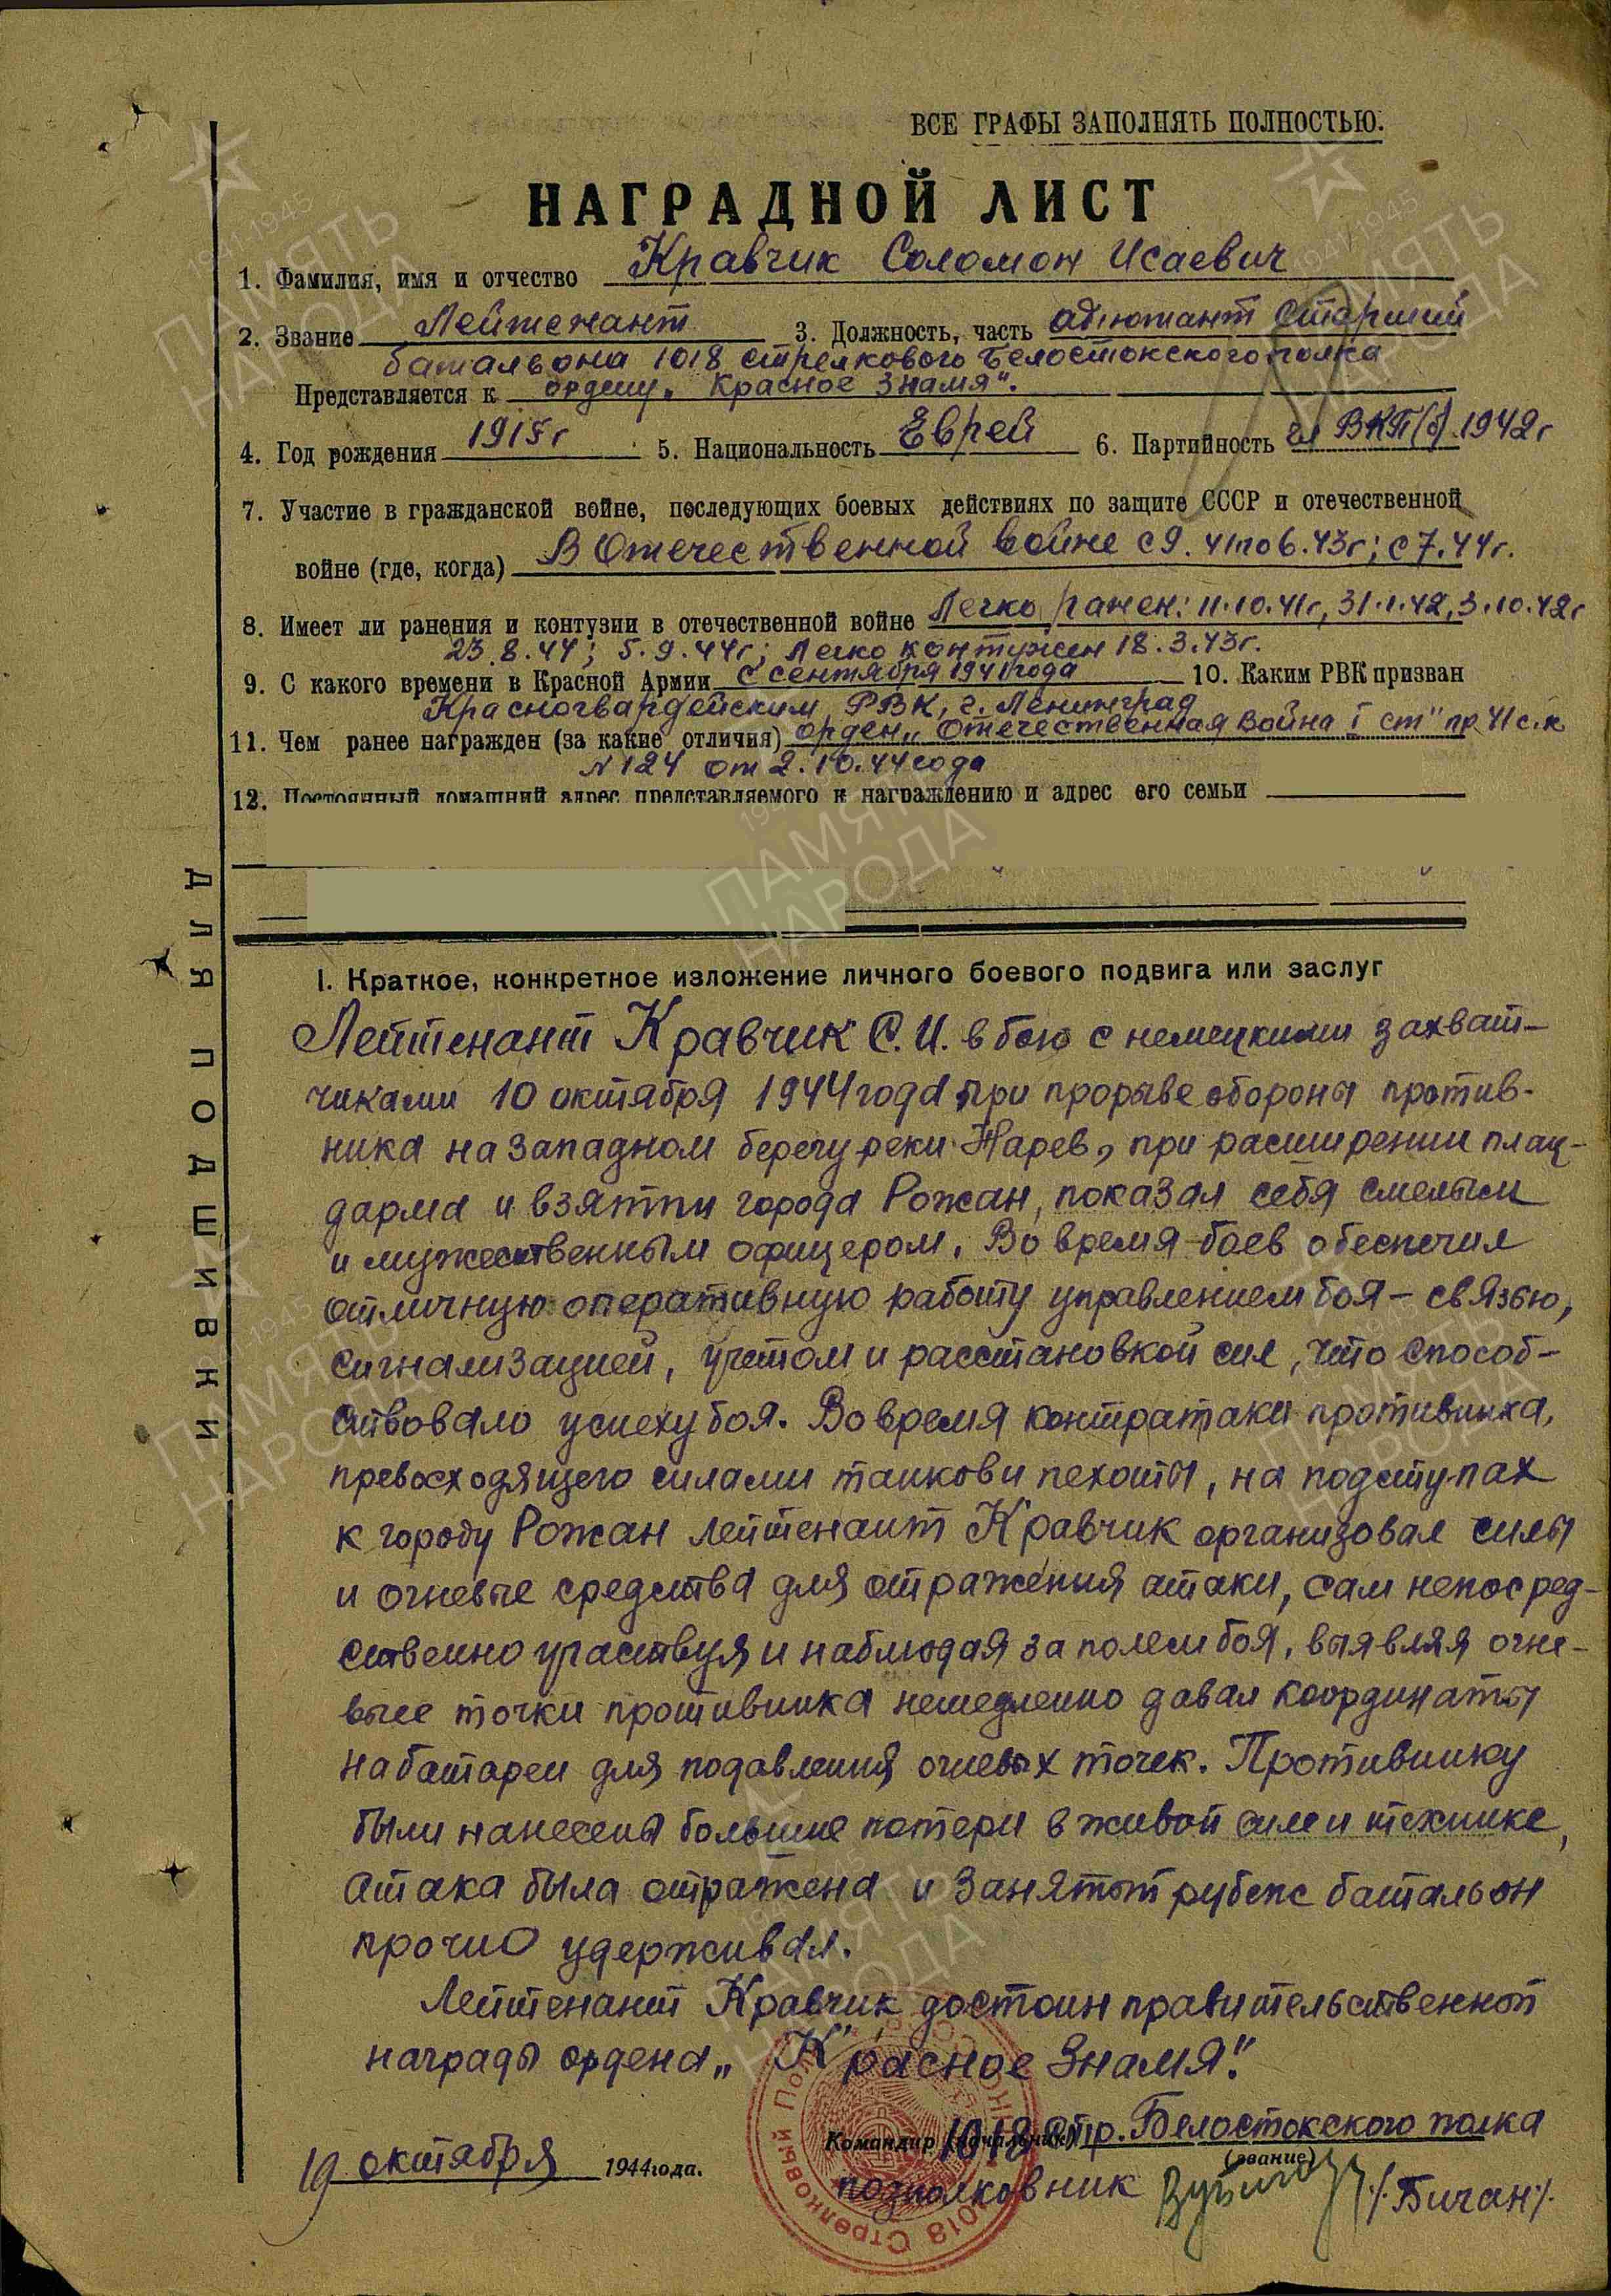 ВСЕ ГРАФЫ ЗАПОЛНЯТЬ ПОЛНОСТЬЮ.
НАГРАДНОЙ ЛИСТ
1. Фамилия, имя и отчество Кравчик Соломон Исаевич
2. Звание Лейтенант 3. Должность, часть адъютант старший
батальона 1018 стрелкового Белостокского полка
Представляется к ордену „Красное Знамя".
4. Год рождения 5. Национальность Еврей 6. Партийность чл ВКП(б) 1942г
7. Участие в гражданской войне, последующих боевых действиях по защите СССР и отечественной
войне (где, когда) В Отечественной войне с 9.41 по 6.43г; с 7.44г.
8. Имеет ли ранения и контузии в отечественной войне Легко ранен: 11.10.41г, 31.1.42, 3.10.42г
23.8.44; 5.9.44г; Легко контужен 18.3.43г.
9. С какого времени в Красной Армии с сентября 1941 года 10. Каким РВК призван
Красногвардейским РВК, г. Ленинград
11. Чем ранее награжден (за какие отличия) орден „Отечественная Война I ст" пр. 41 с.к
N 124 от 2.10.44 года
12. Постоянный домашний адрес представляемого к награждению и адрес его семьи
ДЛЯ ПОДШИВКИ
I. Краткое, конкретное изложение личного боевого подвига или заслуг
Лейтенант Кравчик С.И. в бою с немецкими захват-
чиками 10 октября 1944 года при прорыве обороны против-
ника на западном берегу реки Нарев, при расширении плац-
дарма и взятии города Рожан, показал себя смелым
и мужественным офицером. Во время боев обеспечил
отличную оперативную работу управлением боя – связью,
сигнализацией, учетом и расстановкой сил, что способ-
ствовало успеху боя. Во время контратаки противника,
превосходящего силами танков и пехоты, на подступах
к городу Рожан лейтенант Кравчик организовал силы
и огневые средства для отражения атаки, сам непосред-
ственно участвуя и наблюдая за полем боя, выявляя огне-
вые точки противника немедленно давал координаты
на батареи для подавления огневых точек. Противнику
были нанесены большие потери в живой силе и технике,
атака была отражена и занятый рубеж батальон
прочно удерживал.
Лейтенант Кравчик достоин правительственной
награды ордена „Красное Знамя".
Командир (начальник) 1018 Стр. Белостокского полка
(звание)
19 октября 1944 года.
подполковник /Бичан/.
1018 Стрелковый Полк
1941-1945
ПАМЯТЬ
НАРОДА